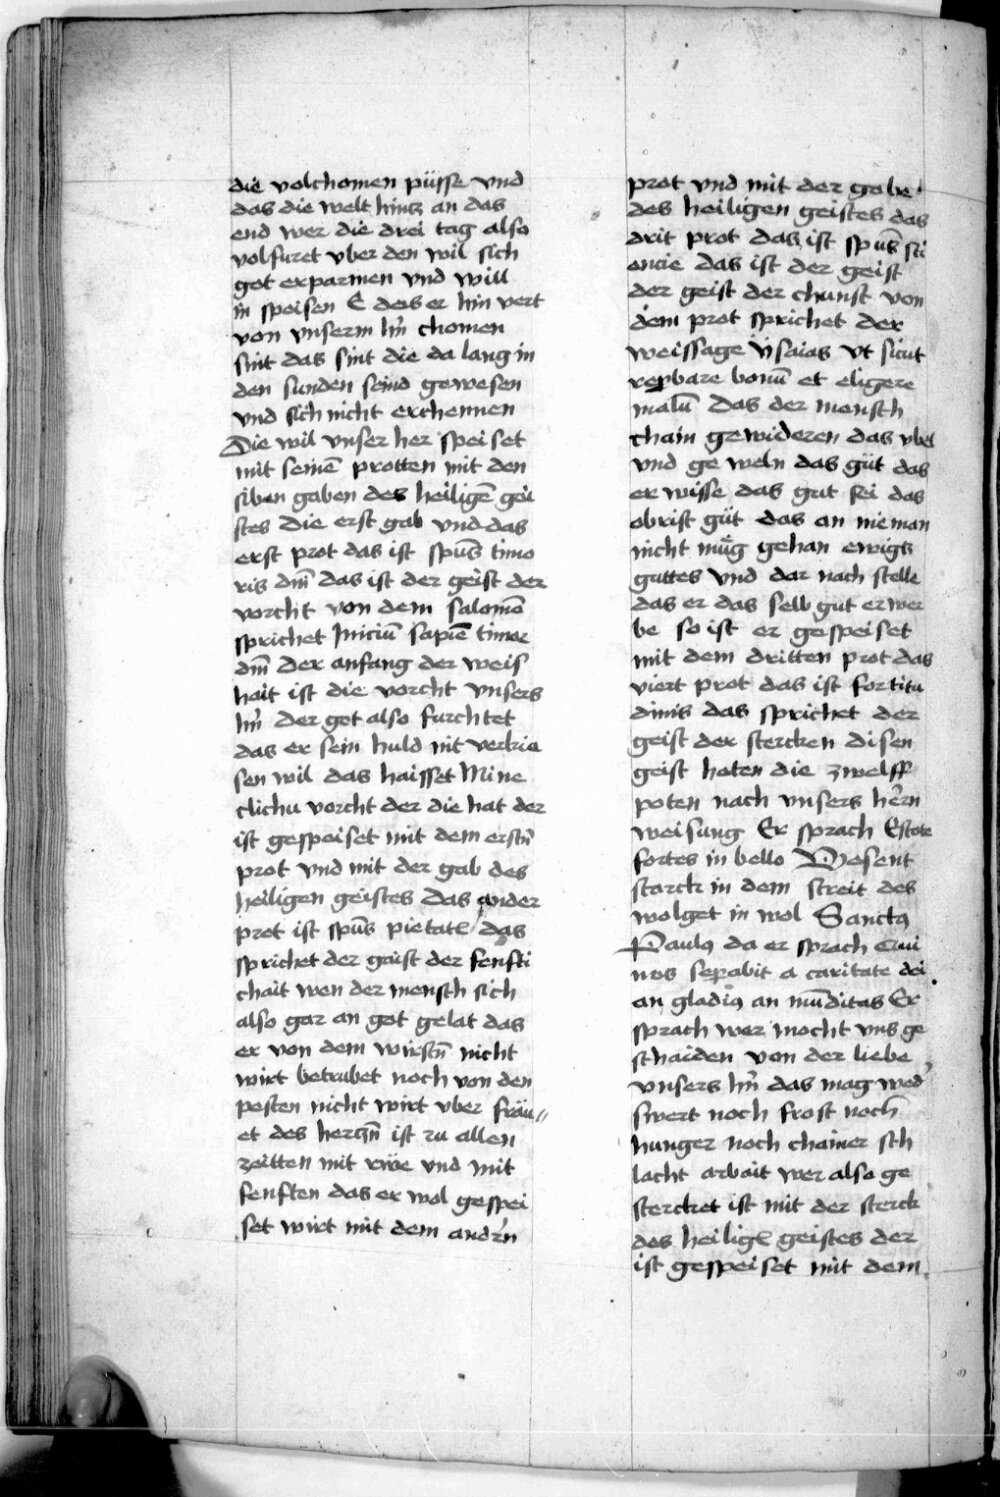 die volchomen püsse vnd
das die welt hintz an das
end wer die drei tag also
volfuret vber den wil sich
got erparmen vnd will
in speisen E das er hin vert
von vnserm hr̄n chomen
sint das sint die da lang in
den sunden seind gewesen
vnd sich nicht erchennen
Die wil vnser her speiset
mit seinē protten mit den
siben gaben des heiligē gei
stes Die erst gab vnd das
erst prot das ist spūs timo
ris dm̄ das ist der geist der
vorcht von dem salomē
sprichet Iniciū sapiē timor
dm̄ Der anfang der weis
hait ist die vorcht vnsers
hr̄n Der got also furchtet
das er sein huld nit verlie
sen wil das haisset Mine
clichu vorcht der die hat der
ist gespeiset mit dem erstn̄
prot vnd mit der gab des
heiligen geistes Das ander
prot ist spūs pietatꝭ das
sprichet der gaist der senfti
chait wen der mensch sich
also gar an got gelat das
er von dem wirstn̄ nicht
wirt betrubet noch von den
pesten nicht wirt vber fräu
et des herczn̄ ist zu allen
zeitten mit rwe vnd mit
senften das er wol gespei
set wirt mit dem andr̄n
prot vnd mit der gabe
des heiligen geistes das
drit prot das ist spūs sci
encie das ist der geist
der geist der chunst von
dem prot sprichet der
weissage ysaias vt sciat
repbare bonū et eligere
malū Das der mensch
chain gewideren das vbel
vnd ge weln das güt das
er wisse das gut sei das
obrist güt das an nieman
nicht müg gehan ewigs
guttes vnd dar nach stelle
das er das selb gut erwer
be so ist er gespeiset
mit dem dritten prot das
viert prot das ist fortitu
dinis das sprichet der
geist der stercken disen
geist heten die zwelff
poten nach vnsers her̄n
weisung Er sprach Estote
fortes in bello Wesent
starck in dem streit des
wolget in wol Sanctꝰ
Paulꝰ da er sprach
nos sepabit a caritate dei
an gladiꝰ an nūditas Er
sprach wer mocht vns ge
schaiden von der liebe
vnsers hr̄n das mag wed'
swert noch frost noch
hunger noch chainer sch
lacht arbait wer also ge
stercket ist mit der sterck
des heiligꝭ geistes der
ist gespeiset mit dem